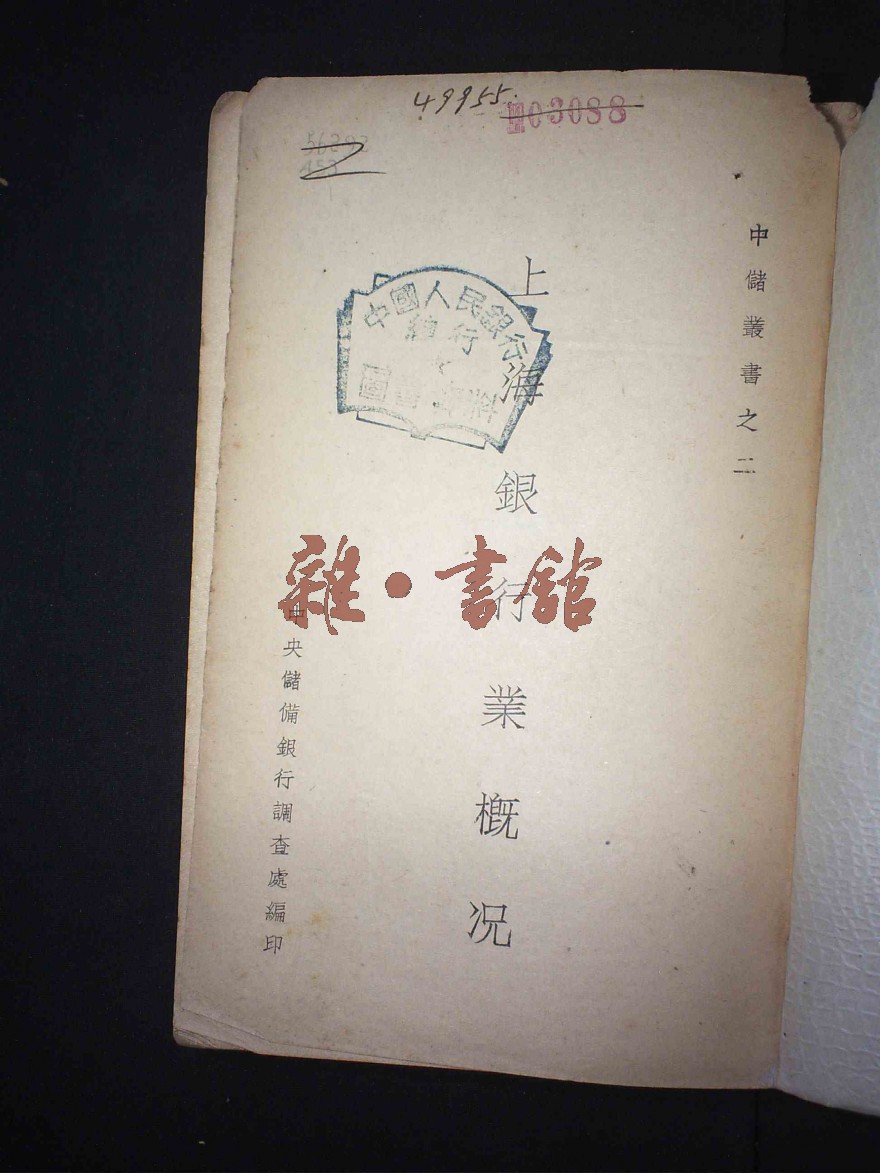 49955.
03088
中儲叢書之二
上海銀行業概況
中央儲備銀行調查處編印
中國人民銀行
總行
圖書資料
雜·書館